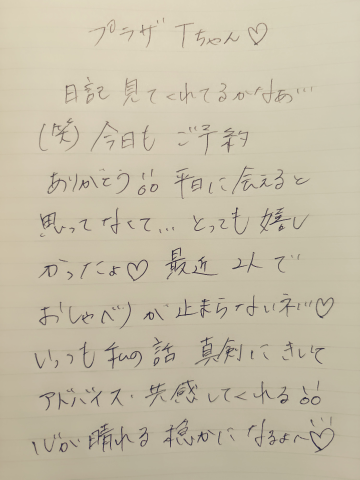 プラザ Tちゃん♡
日記 見てくれてるかなあ…
(笑) 今日も ご予約
ありがとう!! 平日に会えると
思ってなくて… とっても 嬉し
かったよ♡ 最近 2人で
おしゃべりが 止まらないネ!!♡
いっつも 私の話 真剣にきいて
アドバイス・共感してくれる!!
心が晴れる 穏かに なるよ〜♡